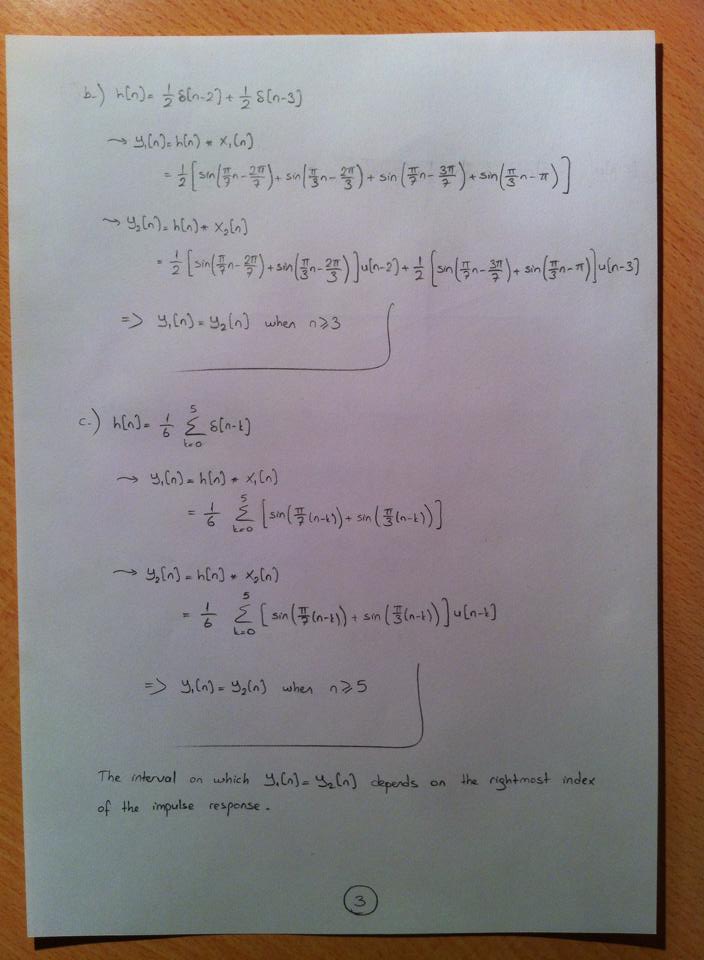 b-) h[n] = 1/2 δ[n-2] + 1/2 δ[n-3]
→ y₁[n] = h[n] * x₁[n]
= 1/2 [sin(π/7 n - 2π/7) + sin(π/3 n - 2π/3) + sin(π/7 n - 3π/7) + sin(π/3 n - π)]
→ y₂[n] = h[n] * x₂[n]
= 1/2 [sin(π/7 n - 2π/7) + sin(π/3 n - 2π/3)] u[n-2] + 1/2 [sin(π/7 n - 3π/7) + sin(π/3 n - π)] u[n-3]
=> y₁[n] = y₂[n] when n ≥ 3
c-) h[n] = 1/6 ∑_{k=0}^{5} δ[n-k]
→ y₁[n] = h[n] * x₁[n]
= 1/6 ∑_{k=0}^{5} [sin(π/7 (n-k)) + sin(π/3 (n-k))]
→ y₂[n] = h[n] * x₂[n]
= 1/6 ∑_{k=0}^{5} [sin(π/7 (n-k)) + sin(π/3 (n-k))] u[n-k]
=> y₁[n] = y₂[n] when n ≥ 5
The interval on which y₁[n] = y₂[n] depends on the rightmost index
of the impulse response.
3